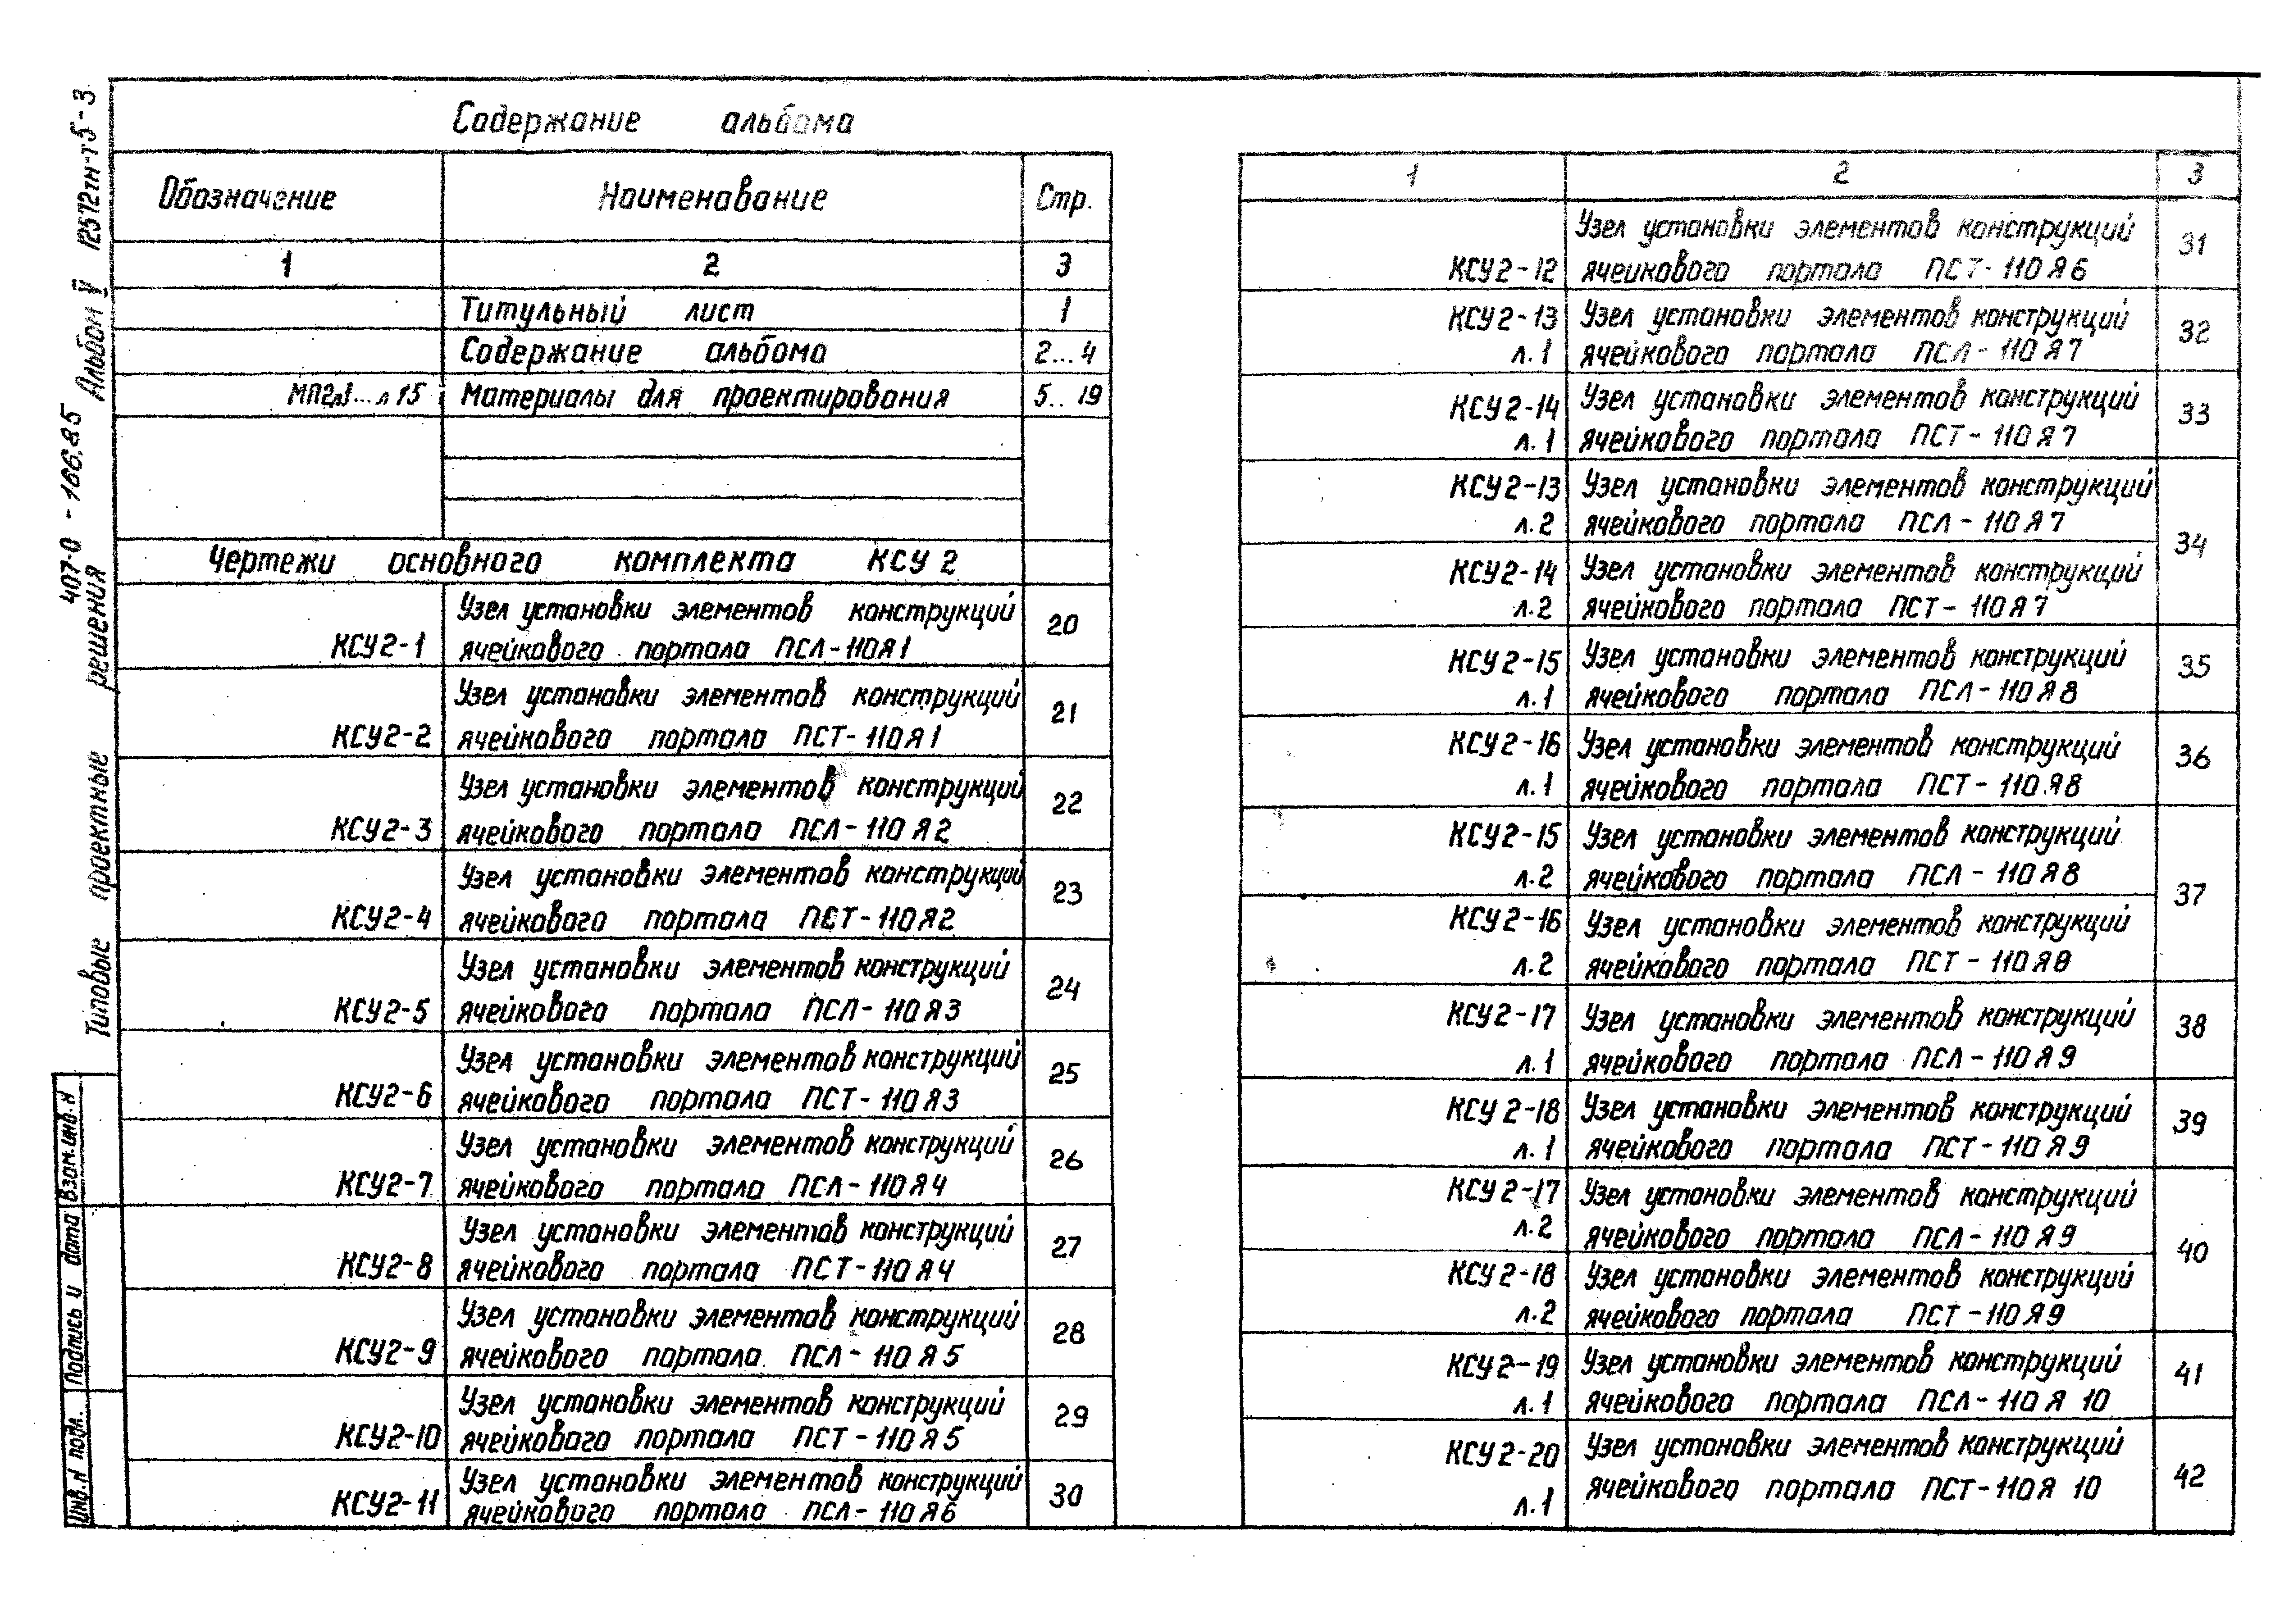 Содержание альбома
Обозначение Наименование Стр.
1 2 3
Титульный лист 1
Содержание альбома 2...4
МП2л1...л15 Материалы для проектирования 5..19
Чертежи основного комплекта КСУ2
Узел установки элементов конструкций
КСУ2-1 ячейкового портала ПСЛ-110Я1 20
Узел установки элементов конструкций
КСУ2-2 ячейкового портала ПСТ-110Я1 21
Узел установки элементов конструкций
КСУ2-3 ячейкового портала ПСЛ-110Я2 22
Узел установки элементов конструкций
КСУ2-4 ячейкового портала ПСТ-110Я2 23
Узел установки элементов конструкций
КСУ2-5 ячейкового портала ПСЛ-110Я3 24
Узел установки элементов конструкций
КСУ2-6 ячейкового портала ПСТ-110Я3 25
Узел установки элементов конструкций
КСУ2-7 ячейкового портала ПСЛ-110Я4 26
Узел установки элементов конструкций
КСУ2-8 ячейкового портала ПСТ-110Я4 27
Узел установки элементов конструкций
КСУ2-9 ячейкового портала ПСЛ-110Я5 28
Узел установки элементов конструкций
КСУ2-10 ячейкового портала ПСТ-110Я5 29
Узел установки элементов конструкций
КСУ2-11 ячейкового портала ПСЛ-110Я6 30
1 2 3
Узел установки элементов конструкций
КСУ2-12 ячейкового портала ПСТ-110Я6 31
КСУ2-13 Узел установки элементов конструкций
л.1 ячейкового портала ПСЛ-110Я7 32
КСУ2-14 Узел установки элементов конструкций
л.1 ячейкового портала ПСТ-110Я7 33
КСУ2-13 Узел установки элементов конструкций
л.2 ячейкового портала ПСЛ-110Я7 34
КСУ2-14 Узел установки элементов конструкций
л.2 ячейкового портала ПСТ-110Я7
КСУ2-15 Узел установки элементов конструкций
л.1 ячейкового портала ПСЛ-110Я8 35
КСУ2-16 Узел установки элементов конструкций
л.1 ячейкового портала ПСТ-110Я8 36
КСУ2-15 Узел установки элементов конструкций
л.2 ячейкового портала ПСЛ-110Я8 37
КСУ2-16 Узел установки элементов конструкций
л.2 ячейкового портала ПСТ-110Я8
КСУ2-17 Узел установки элементов конструкций
л.1 ячейкового портала ПСЛ-110Я9 38
КСУ2-18 Узел установки элементов конструкций
л.1 ячейкового портала ПСТ-110Я9 39
КСУ2-17 Узел установки элементов конструкций
л.2 ячейкового портала ПСЛ-110Я9 40
КСУ2-18 Узел установки элементов конструкций
л.2 ячейкового портала ПСТ-110Я9
КСУ2-19 Узел установки элементов конструкций
л.1 ячейкового портала ПСЛ-110Я10 41
КСУ2-20 Узел установки элементов конструкций
л.1 ячейкового портала ПСТ-110Я10 42
Типовые проектные решения
407-0-166.85 Альбом V 12572тм-т5-3
Инв.N подл. Подпись и дата Взам.инв.N